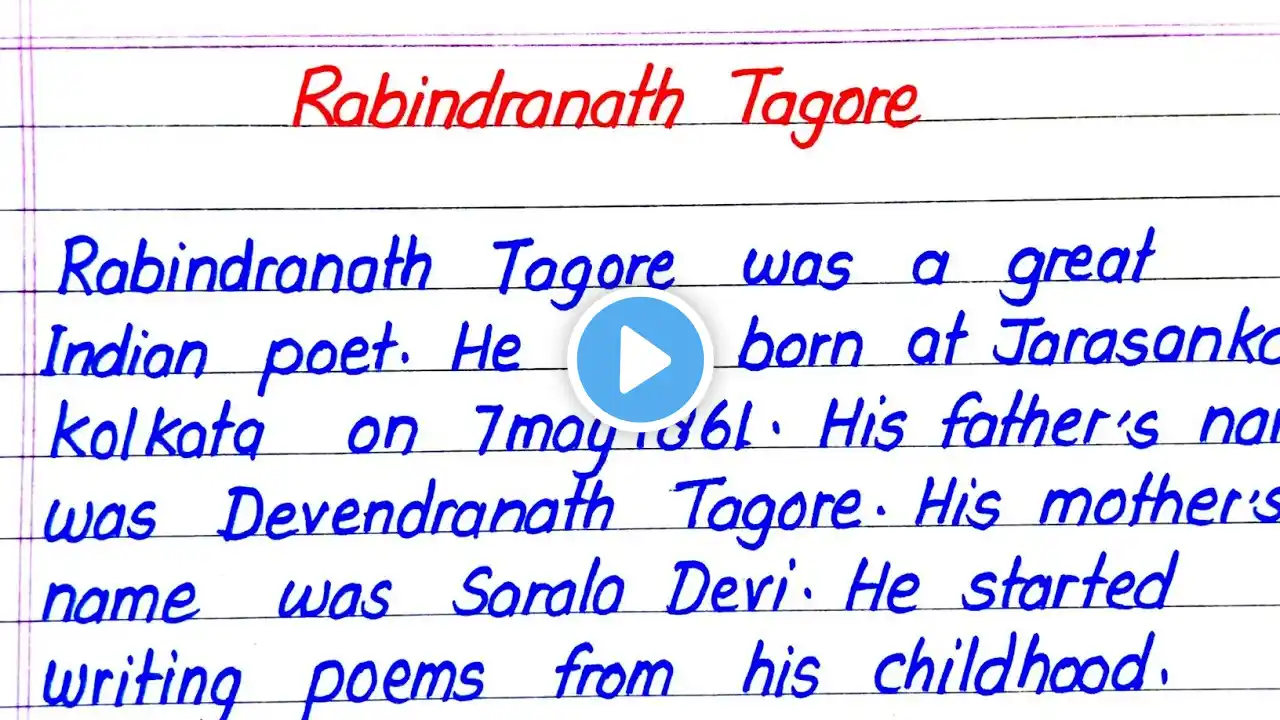 Rabindranath Tagore
Rabindranath Tagore was a great
Indian poet. He born at Jarasanko
kolkata on 7may 1861. His father's
was Devendranath Tagore. His mother's
name was Sarala Devi. He started
writing poems from his childhood.